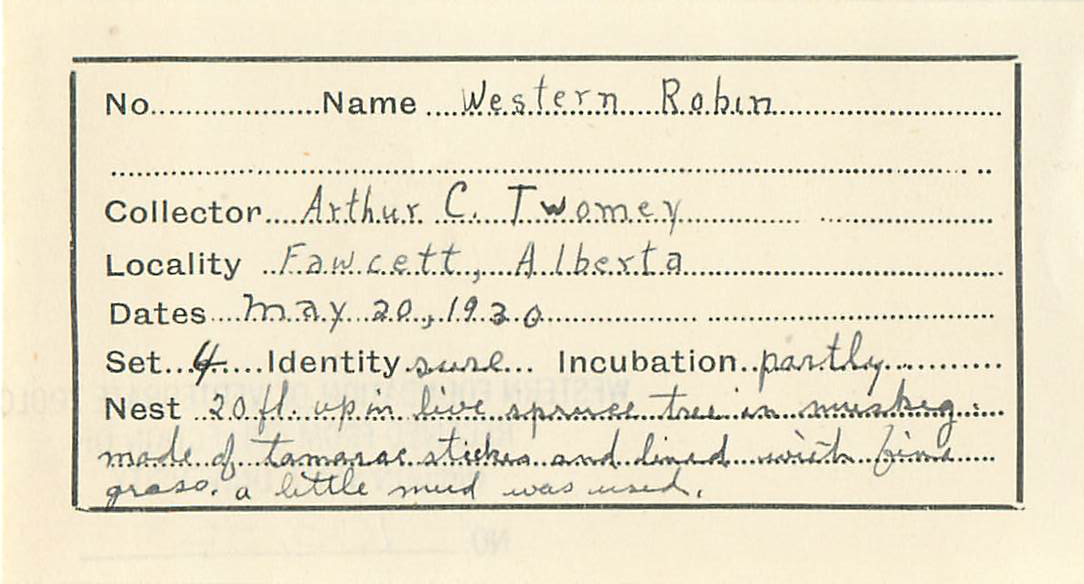 No. Name Western Robin
Collector Arthur C. Twomey
Locality Fawcett, Alberta
Dates May 20, 1930
Set 4 Identity sure Incubation partly
Nest 20 ft. up in live spruce tree in muskeg.
made of tamarac stickes and lined with fine
grass. a little mud was used.
WESTERN FOUNDATION OF VERTEBRATE
NO